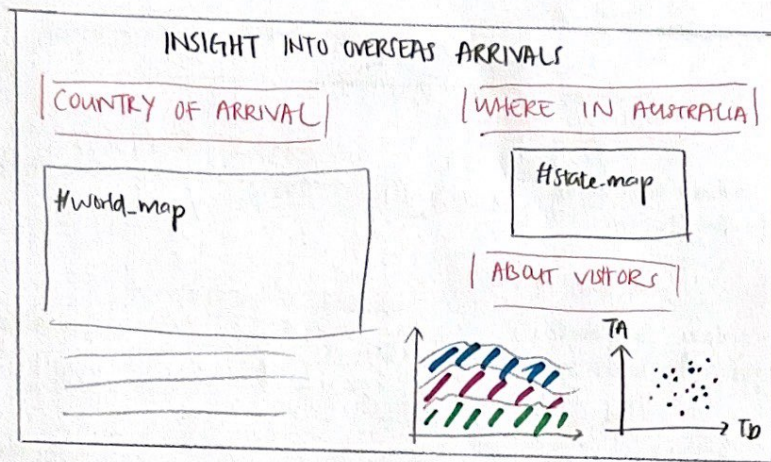 INSIGHT INTO OVERSEAS ARRIVALS
COUNTRY OF ARRIVAL
WHERE IN AUSTRALIA
#world_map
#state_map
ABOUT VISITORS
TA
TD